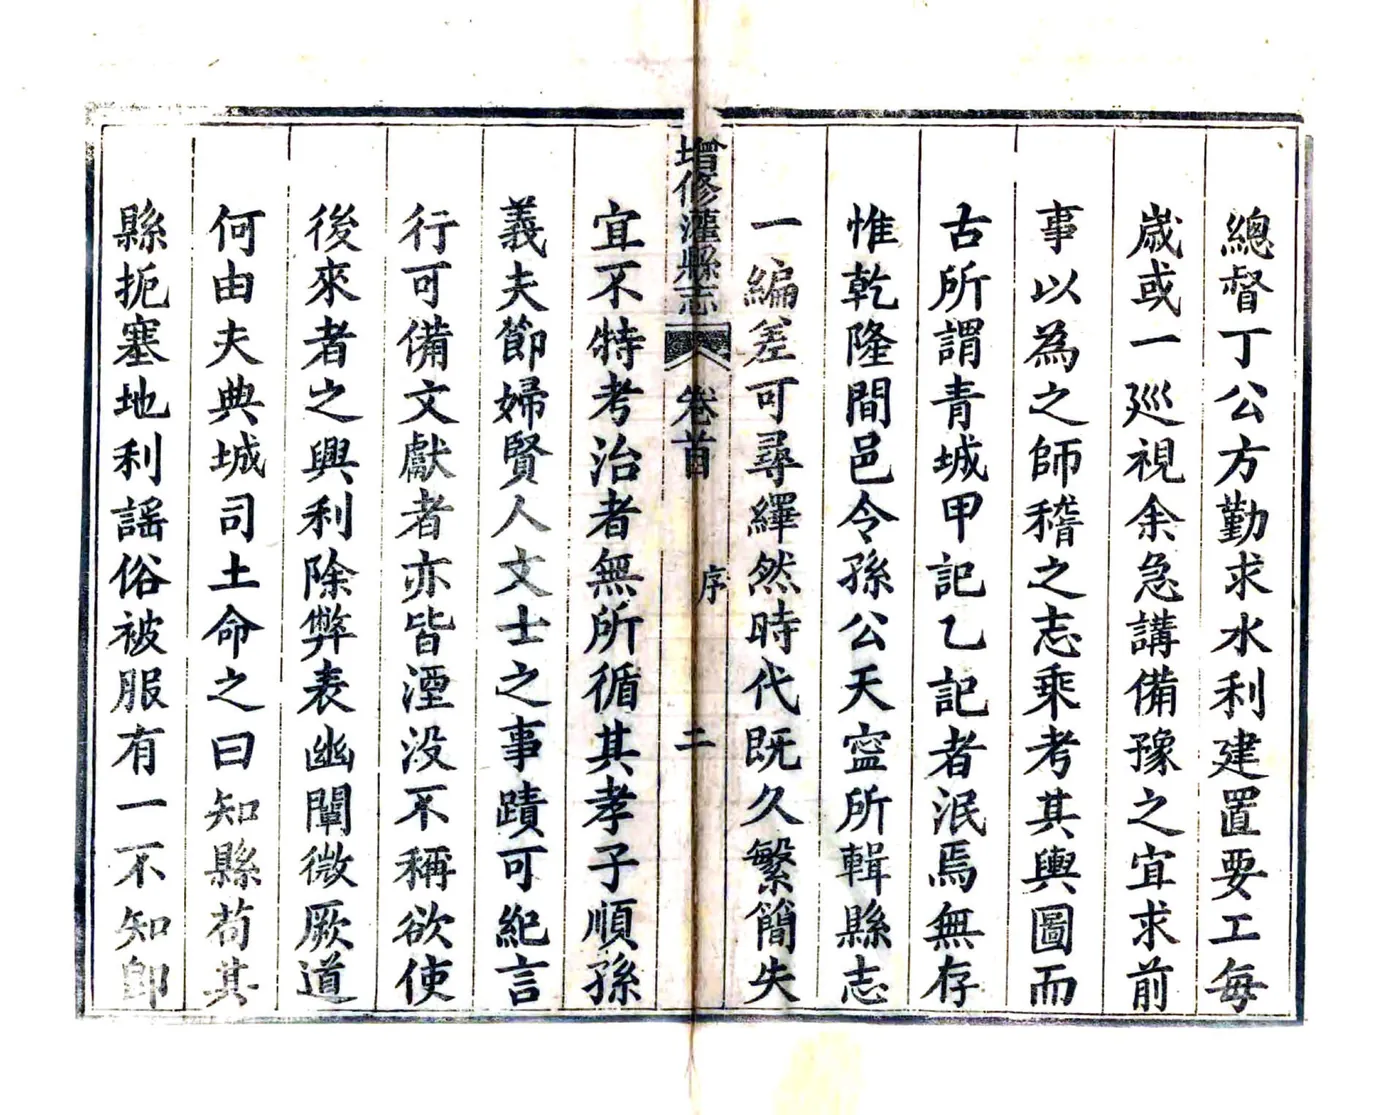 總督丁公方勤求水利建置要工每
歲或一巡視余急講備豫之宜求前
事以為之師稽之志乘考其輿圖而
古所謂青城甲記乙記者泯焉無存
惟乾隆間邑令孫公天寍所輯縣志
一編差可尋繹然時代既久繁簡失
增修灌縣志 卷首 序 二
宜不特考治者無所循其孝子順孫
義夫節婦賢人文士之事蹟可紀言
行可備文獻者亦皆湮没不稱欲使
後來者之興利除弊表幽闡微厥道
何由夫典城司土命之曰知縣苟其
縣扼塞地利謡俗被服有一不知卽